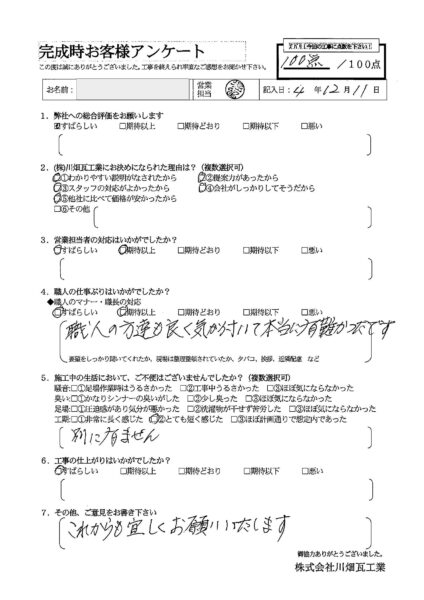 完成時お客様アンケート
この度は誠にありがとうございました。工事を終えられ率直なご感想をお聞かせ下さい。
ズバリ！今回の工事に点数を下さい！
100点 /100点
お名前：
営業担当
記入日：4年12月11日
1．弊社への総合評価をお願いします
☑すばらしい □期待以上 □期待どおり □期待以下 □悪い
2．(株)川畑瓦工業にお決めになられた理由は？（複数選択可）
□①わかりやすい説明がなされたから □②提案力があったから
□③スタッフの対応がよかったから □④会社がしっかりしてそうだから
□⑤他社に比べて価格が安かったから
□⑥その他
3．営業担当者の対応はいかがでしたか？
□すばらしい □期待以上 □期待どおり □期待以下 □悪い
4．職人の仕事ぶりはいかがでしたか？
◆職人のマナー・職長の対応
□すばらしい □期待以上 □期待どおり □期待以下 □悪い
職人の方達も良く気が付いて本当に有難かったです
要望をしっかり聞いてくれたか、現場は整理整頓されていたか、タバコ、挨拶、近隣配慮 など
5．施工中の生活において、ご不便はございませんでしたか？（複数選択可）
騒音:□①足場作業時はうるさかった □②工事中うるさかった □③ほぼ気にならなかった
臭い:□①かなりシンナーの臭いがした □②少し臭った □③ほぼ気にならなかった
足場:□①圧迫感があり気分が悪かった □②洗濯物が干せず苦労した □③ほぼ気にならなかった
工期:□①非常に長く感じた □②とても短く感じた □③ほぼ計画通りで想定内であった
別に有ません
6．工事の仕上がりはいかがでしたか？
□すばらしい □期待以上 □期待どおり □期待以下 □悪い
7．その他、ご意見をお書き下さい
これからも宜しくお願いいたします
御協力ありがとうございました。
株式会社川畑瓦工業